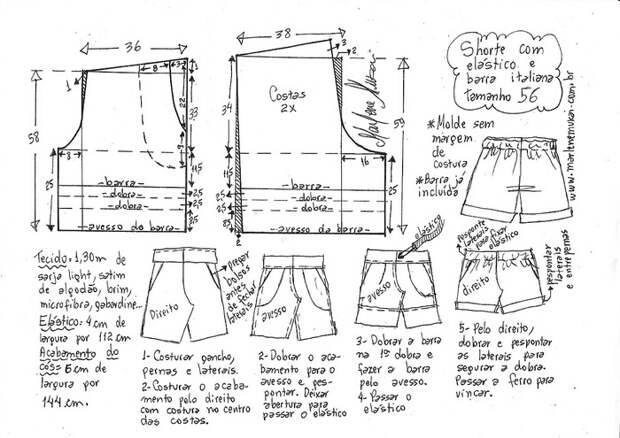 36
38
8
3
1
1
22
33
9
58
8
11,5
25
-barra-
2,5
-dobra-
2,5
-dobra-
3,5
avesso da barra
3
2
34
Costas
2X
Marlene Mukai
59
16
11,5
25
-barra-
2,5
-dobra-
2,5
-dobra-
avesso da barra
2
Shorte com
elástico e
barra italiana
tamanho 56
*Molde sem
margem
de
costura
*Barra já
incluida
www.marlenemukai.com.br
Tecido: 1,30m de
sarja light, satim
de algodão, brim,
microfibra, gabardine...
Elástico: 4 cm de
largura por 112 cm
Acabamento do
cós: 6 cm de
largura por
144 cm.
Direito
prepar
bolsos
antes
de fechar
laterais
avesso
elástico
avesso
pesponte
laterais
para fixar
elástico
direito
pespontar
laterais
e entrepernas
1- Costurar gancho,
pernas e laterais.
2- Costurar o acaba-
mento pelo direito
com costura no centro
das costas.
2- Dobrar o aca-
bamento para o
avesso e pes-
pontar. Deixar
abertura para
passar o elástico
3- Dobrar a barra
na 1ª dobra e
fazer a barra
pelo avesso.
4- Passar o
elástico
5- Pelo direito,
dobrar e pespontar
as laterais para
segurar a dobra.
Passar a ferro para
vincar.